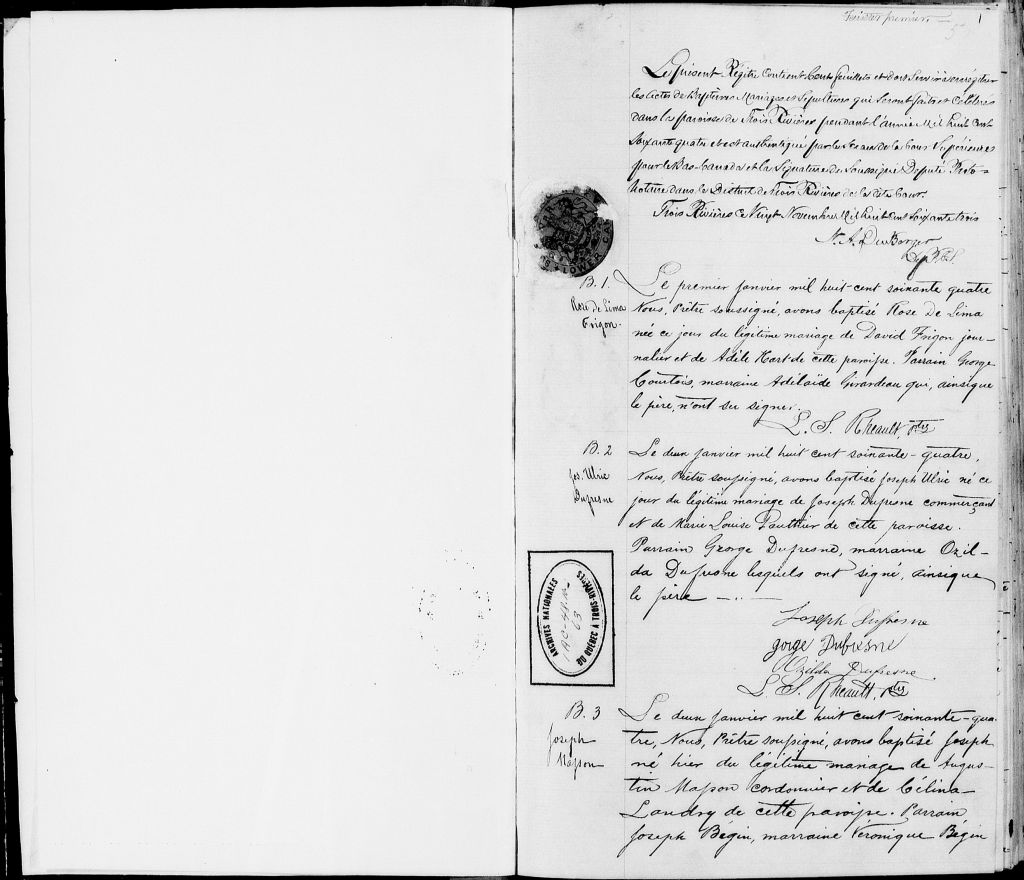 Feuillet premier. — 1
Le présent Régitre contient Cent feuillets et doit servir à enrégitrer
les Actes de Baptêmes Mariages et Sépultures qui seront faits et célébrés
dans la paroisse de Trois Rivières pendant l'année Mil huit cent
Soixante quatre et est authentiqué par le Sceau de la Cour Supérieure
pour le Bas-Canada et la Signature du Soussigné Député Proto-
notaire dans le District de Trois Rivières de la dite Cour.
Trois Rivières ce Vingt Novembre Mil huit cent soixante trois
N. A. DuBerger
Dep P.C.S.
B. 1.
Rose de Lima
Frigon-
Le premier janvier mil huit-cent soixante quatre
Nous, Prêtre soussigné, avons baptisé Rose De Lima
née ce jour du légitime mariage de David Frigon jour-
nalier et de Adèle Hart de cette paroisse. Parrain George
Courtois, marraine Adélaïde Girardeau qui, ainsique
le père, n'ont su signer.
L. S. Rheault ptre
B. 2
Jos. Ulric
Dufresne
Le deux janvier mil huit cent soixante-quatre,
Nous, Prêtre soussigné, avons baptisé Joseph Ulric né ce
jour du légitime mariage de Joseph Dufresne commerçant
et de Marie Louise Pauthier de cette paroisse.
Parrain George Dufresne, marraine Ozil-
da Dufresne lesquels ont signé, ainsique
le père — . — .
Joseph Dufresne
gorge Dufresne
Ozilda Dufresne
L. S. Rheault, ptre
ARCHIVES NATIONALES
DU QUÉBEC À TROIS-RIVIÈRES
63
B. 3
Joseph
Masson
Le deux janvier mil huit cent soixante-qua-
tre, Nous, Prêtre soussigné, avons baptisé Joseph
né hier du légitime mariage de Augus-
tin Masson cordonnier et de Célina
Landry de cette paroisse. Parrain
Joseph Bégin, marraine Véronique Bégin